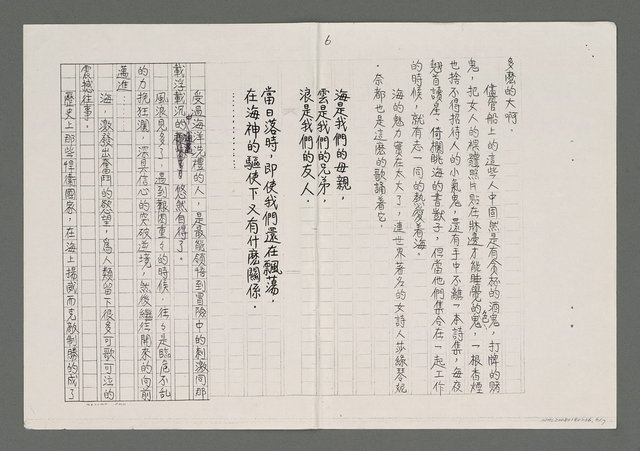 6
多麽的大啊．
儘管船上的這些人中固然是有貪杯的酒鬼，打牌的賭
鬼，把女人的裸體照片貼在牀邊才能睡覺的色鬼，一根香煙
也捨不得招待人的小氣鬼，還有手中不離一本詩集，每夜
翹首諸星，倚欄眺海的書獃子，但當他們集合在一起工作
的時候，就有志一同的熱愛着海．
海的魅力實在太大了，連世界著名的女詩人莎綠琴妮
．奈都也是這麽的歌誦著它．
海是我們的母親，
雲是我們的兄弟，
浪是我們的友人．
當日落時，即使我們還在飄蕩，
在海神的驅使下又有什麽關係．
…………
受過海洋洗禮的人，是最能領悟到冒險中的刺激同那
載浮載沉的悠然自得了．
風浪見多了，遇到艱困重々的時候，往々是臨危不亂
的力挽狂瀾，深具信心的突破逆境，然後繼往開來的向前
邁進…
海，激發出奮鬥的慾望，爲人類留下很多可歌可泣的
震撼往事．
歷史上那些悍衛國家，在海上揚威而克敵制勝的成了